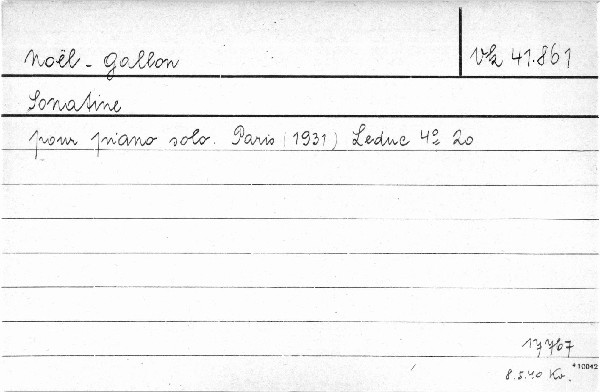 Noël-Gallon Vk 41.861
Sonatine
pour piano solo. Paris (1931) Leduc 4º 20
17767
*10042
8.5.40 Kv.